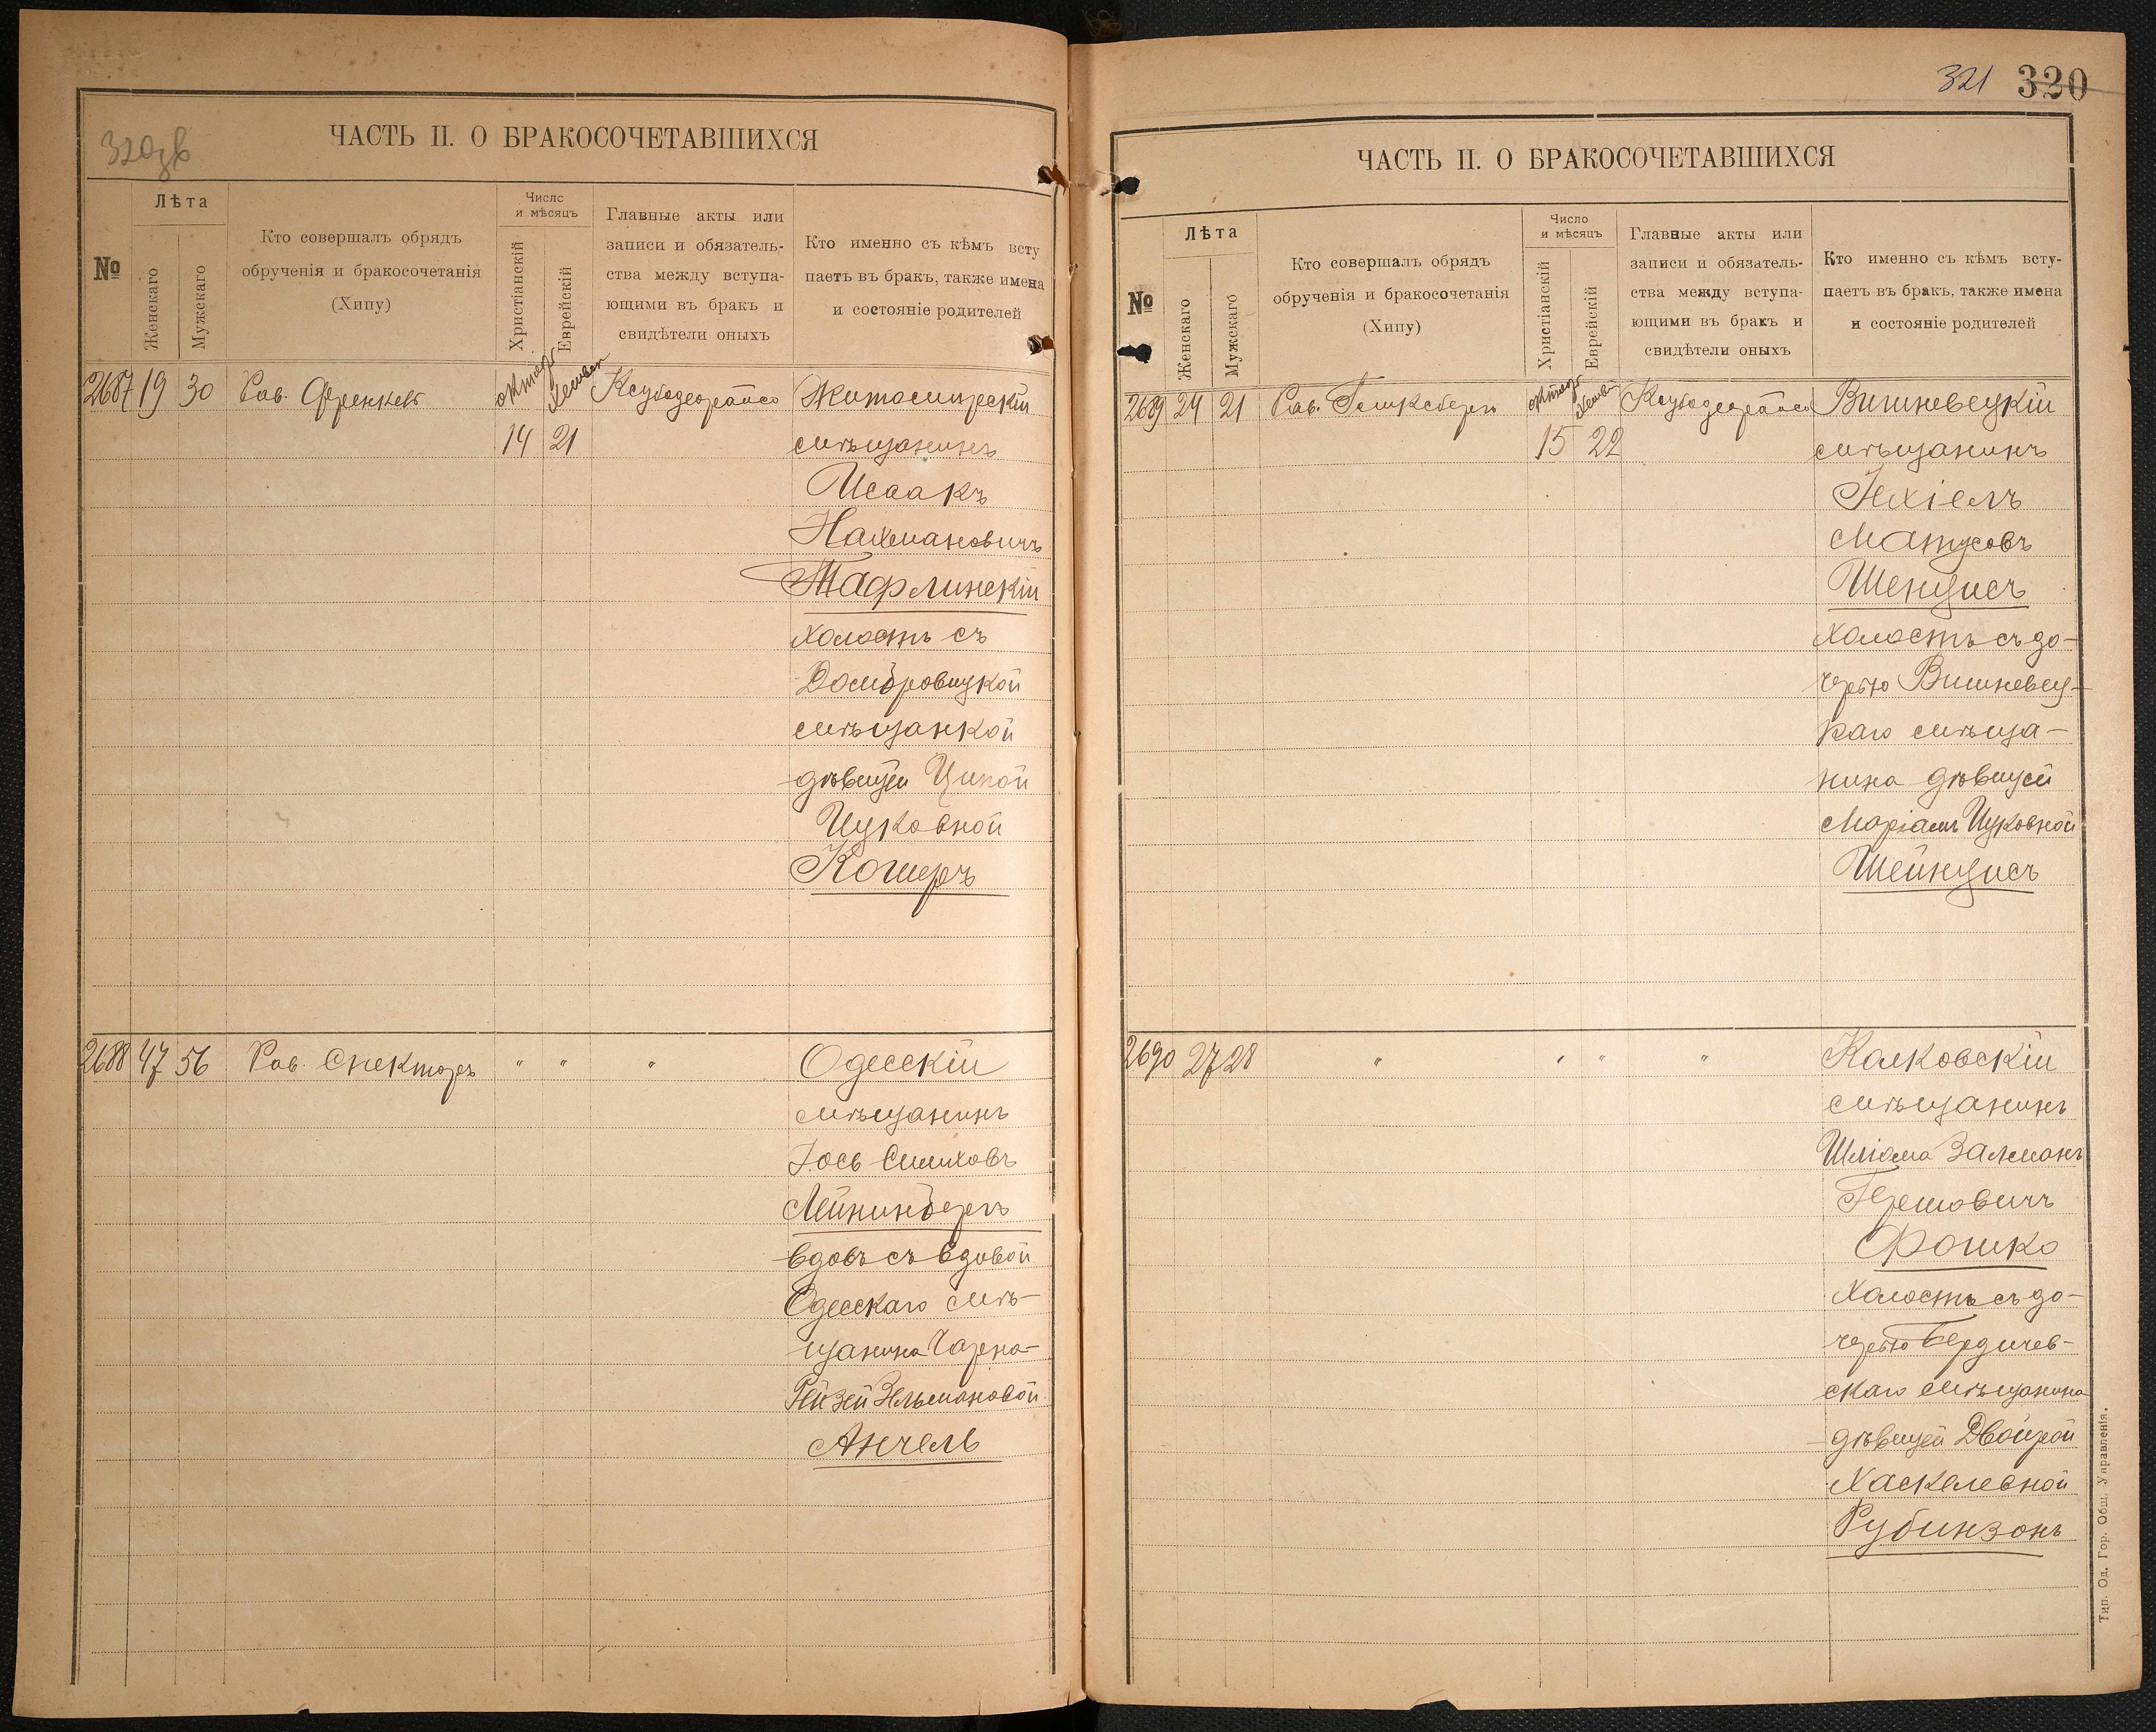 320зв
ЧАСТЬ II. О БРАКОСОЧЕТАВШИХСЯ
№
Лѣта
Женскаго
Мужскаго
Кто совершалъ обрядъ
обрученія и бракосочетанія
(Хипу)
Число
и мѣсяцъ
Христіанскій
Еврейскій
Главные акты или
записи и обязатель-
ства между вступа-
ющими въ бракъ и
свидѣтели оныхъ
Кто именно съ кѣмъ всту
паетъ въ бракъ, также имена
и состояніе родителей
2687 19 30 Рав. Френкель
14 21
Житомирскій
мѣщанинъ
Исаакъ
Нахмановичъ
Тафлинскій
холостъ съ
Домбровицкой
мѣщанкой
дѣвицей Ципой
Ицковной
Кошеръ
2688 47 56 Рав. Спекторъ " " "
Одесскій
мѣщанинъ
Іось Симховъ
вдовъ съ вдовой
Одесскаго мѣ-
щанина Чарна-
Рейзей Зельмановой
Анчель
321 320
ЧАСТЬ II. О БРАКОСОЧЕТАВШИХСЯ
№
Лѣта
Женскаго
Мужскаго
Кто совершалъ обрядъ
обрученія и бракосочетанія
(Хипу)
Число
и мѣсяцъ
Христіанскій
Еврейскій
Главные акты или
записи и обязатель-
ства между вступа-
ющими въ бракъ и
свидѣтели оныхъ
Кто именно съ кѣмъ всту-
паетъ въ бракъ, также имена
и состояніе родителей
2689 24 21 Рав. Гинксбергъ
15 22
Вишневецкій
мѣщанинъ
Іехіелъ
Матусовъ
Шенцисъ
холостъ съ до-
черью Вишневец-
каго мѣща-
нина дѣвицей
Маріамъ Ицковной
Шейнцисъ
2690 27 28 " " " "
Калковскій
мѣщанинъ
Шліома Залманъ
Гершовичъ
Фошко
холостъ съ до-
черью Бердичев-
скаго мѣщанина
дѣвицей Двойрой
Хаскелевной
Рубинзонъ
Тип. Од. Гор. Общ. Управленія.